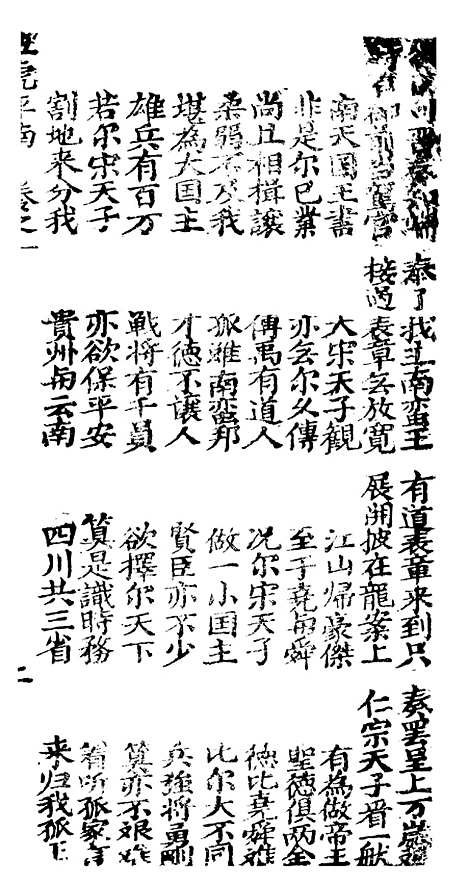 奏知端 奏了我主南蛮王 有道表章来到只 奏罢呈上万岁
御前当驾官 接過表章无放寬 展開披在龍案上 仁宗天子看一
南天国王書 大宋天子觀 江山帰豪傑 有為做帝王
非是尔己業 亦无尔父傳 至于堯与舜 聖德俱两全
尚且相揖讓 傳禹有道人 况尔宋天子 德比堯舜难
柔弱不及我 孤雖南蛮邦 做一小国主 比尔大不同
堪為大国主 才德不讓人 賢臣亦不少 兵強将勇剛
雄兵有百万 戰将有千員 欲擇尔天下 算亦不艰难
若尔宋天子 亦欲保平安 算是識時務 着听孤家言
割地来分我 貴州与云南 四川共三省 来归我孤王
虎平南 卷之一 二